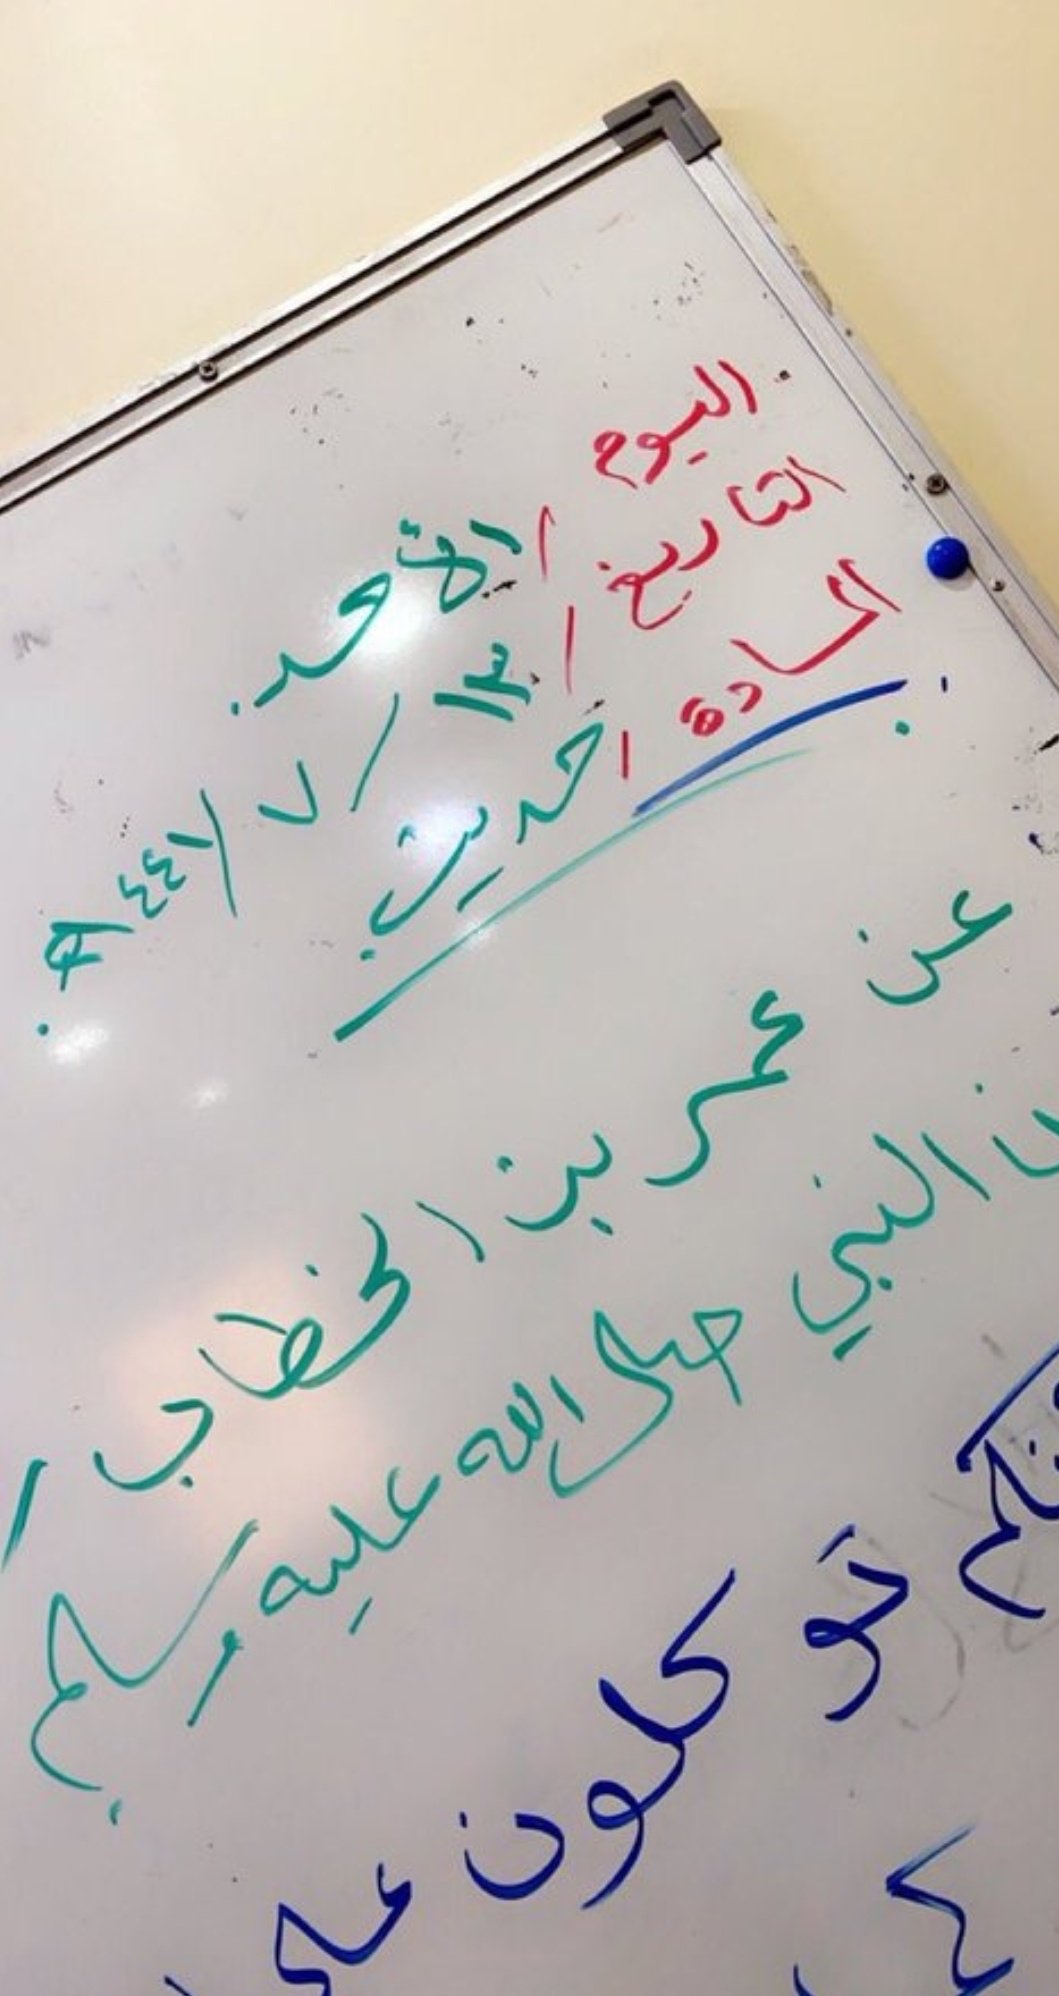 اليوم / الأحد.
التاريخ / ١٣ / ٧ / ١٤٤٦هـ.
المادة / حديث.
عن عمر بن الخطاب
النبي صلى الله عليه وسلم
توكلون على